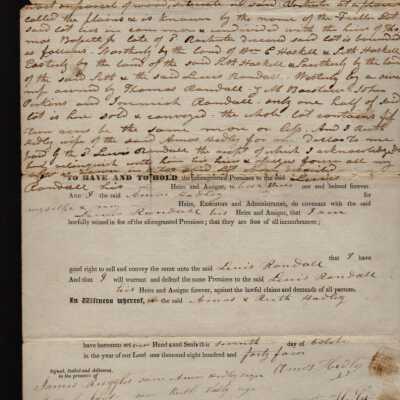 called the plains & is known by the name of the Fuller lot
said lot lies in common & undivided with the heirs of Tho
mas late of deceased said lot is bounded
as follows. Northerly by the land of Wm E Haskell & Seth Haskell
Easterly by the land of the said Seth Haskell & Southerly by the land
of the said Seth & the said Lewis Randall. Westerly by a
owned by Thomas Randall John
Perkins and Randall - only one half of said
lot is here sold & conveyed. the whole lot contains fif
teen acres be the same more or less. And I Ruth
Hadley wife of the said Amos Hadley for one Dollar to me
paid by the Lewis Randall the receipt of which I acknowledge
relinquish
TO HAVE AND TO HOLD the aforegranted Premises to the said Lewis
Randall his Heirs and Assigns, to use and behoof forever.
And I the said Amos Hadley for
myself & my Heirs, Executors and Administrators, do covenant with the said
Lewis Randall his Heirs and Assigns, that I am
lawfully seized in fee of the aforegranted Premises; that they are free of all incumbrances;
that I have
good right to sell and convey the same unto the said Lewis Randall
And that I will warrant and defend the same Premises to the said Lewis Randall
his Heirs and Assigns forever, against the lawful claims and demands of all persons.
In Witness whereof, the said Amos & Ruth Hadley
have hereunto set our Hand and Seals this seventh day of
in the year of our Lord one thousand eight hundred and forty four
Signed, Sealed and delivered, Amos Hadley
in the presence of
James Ruggles